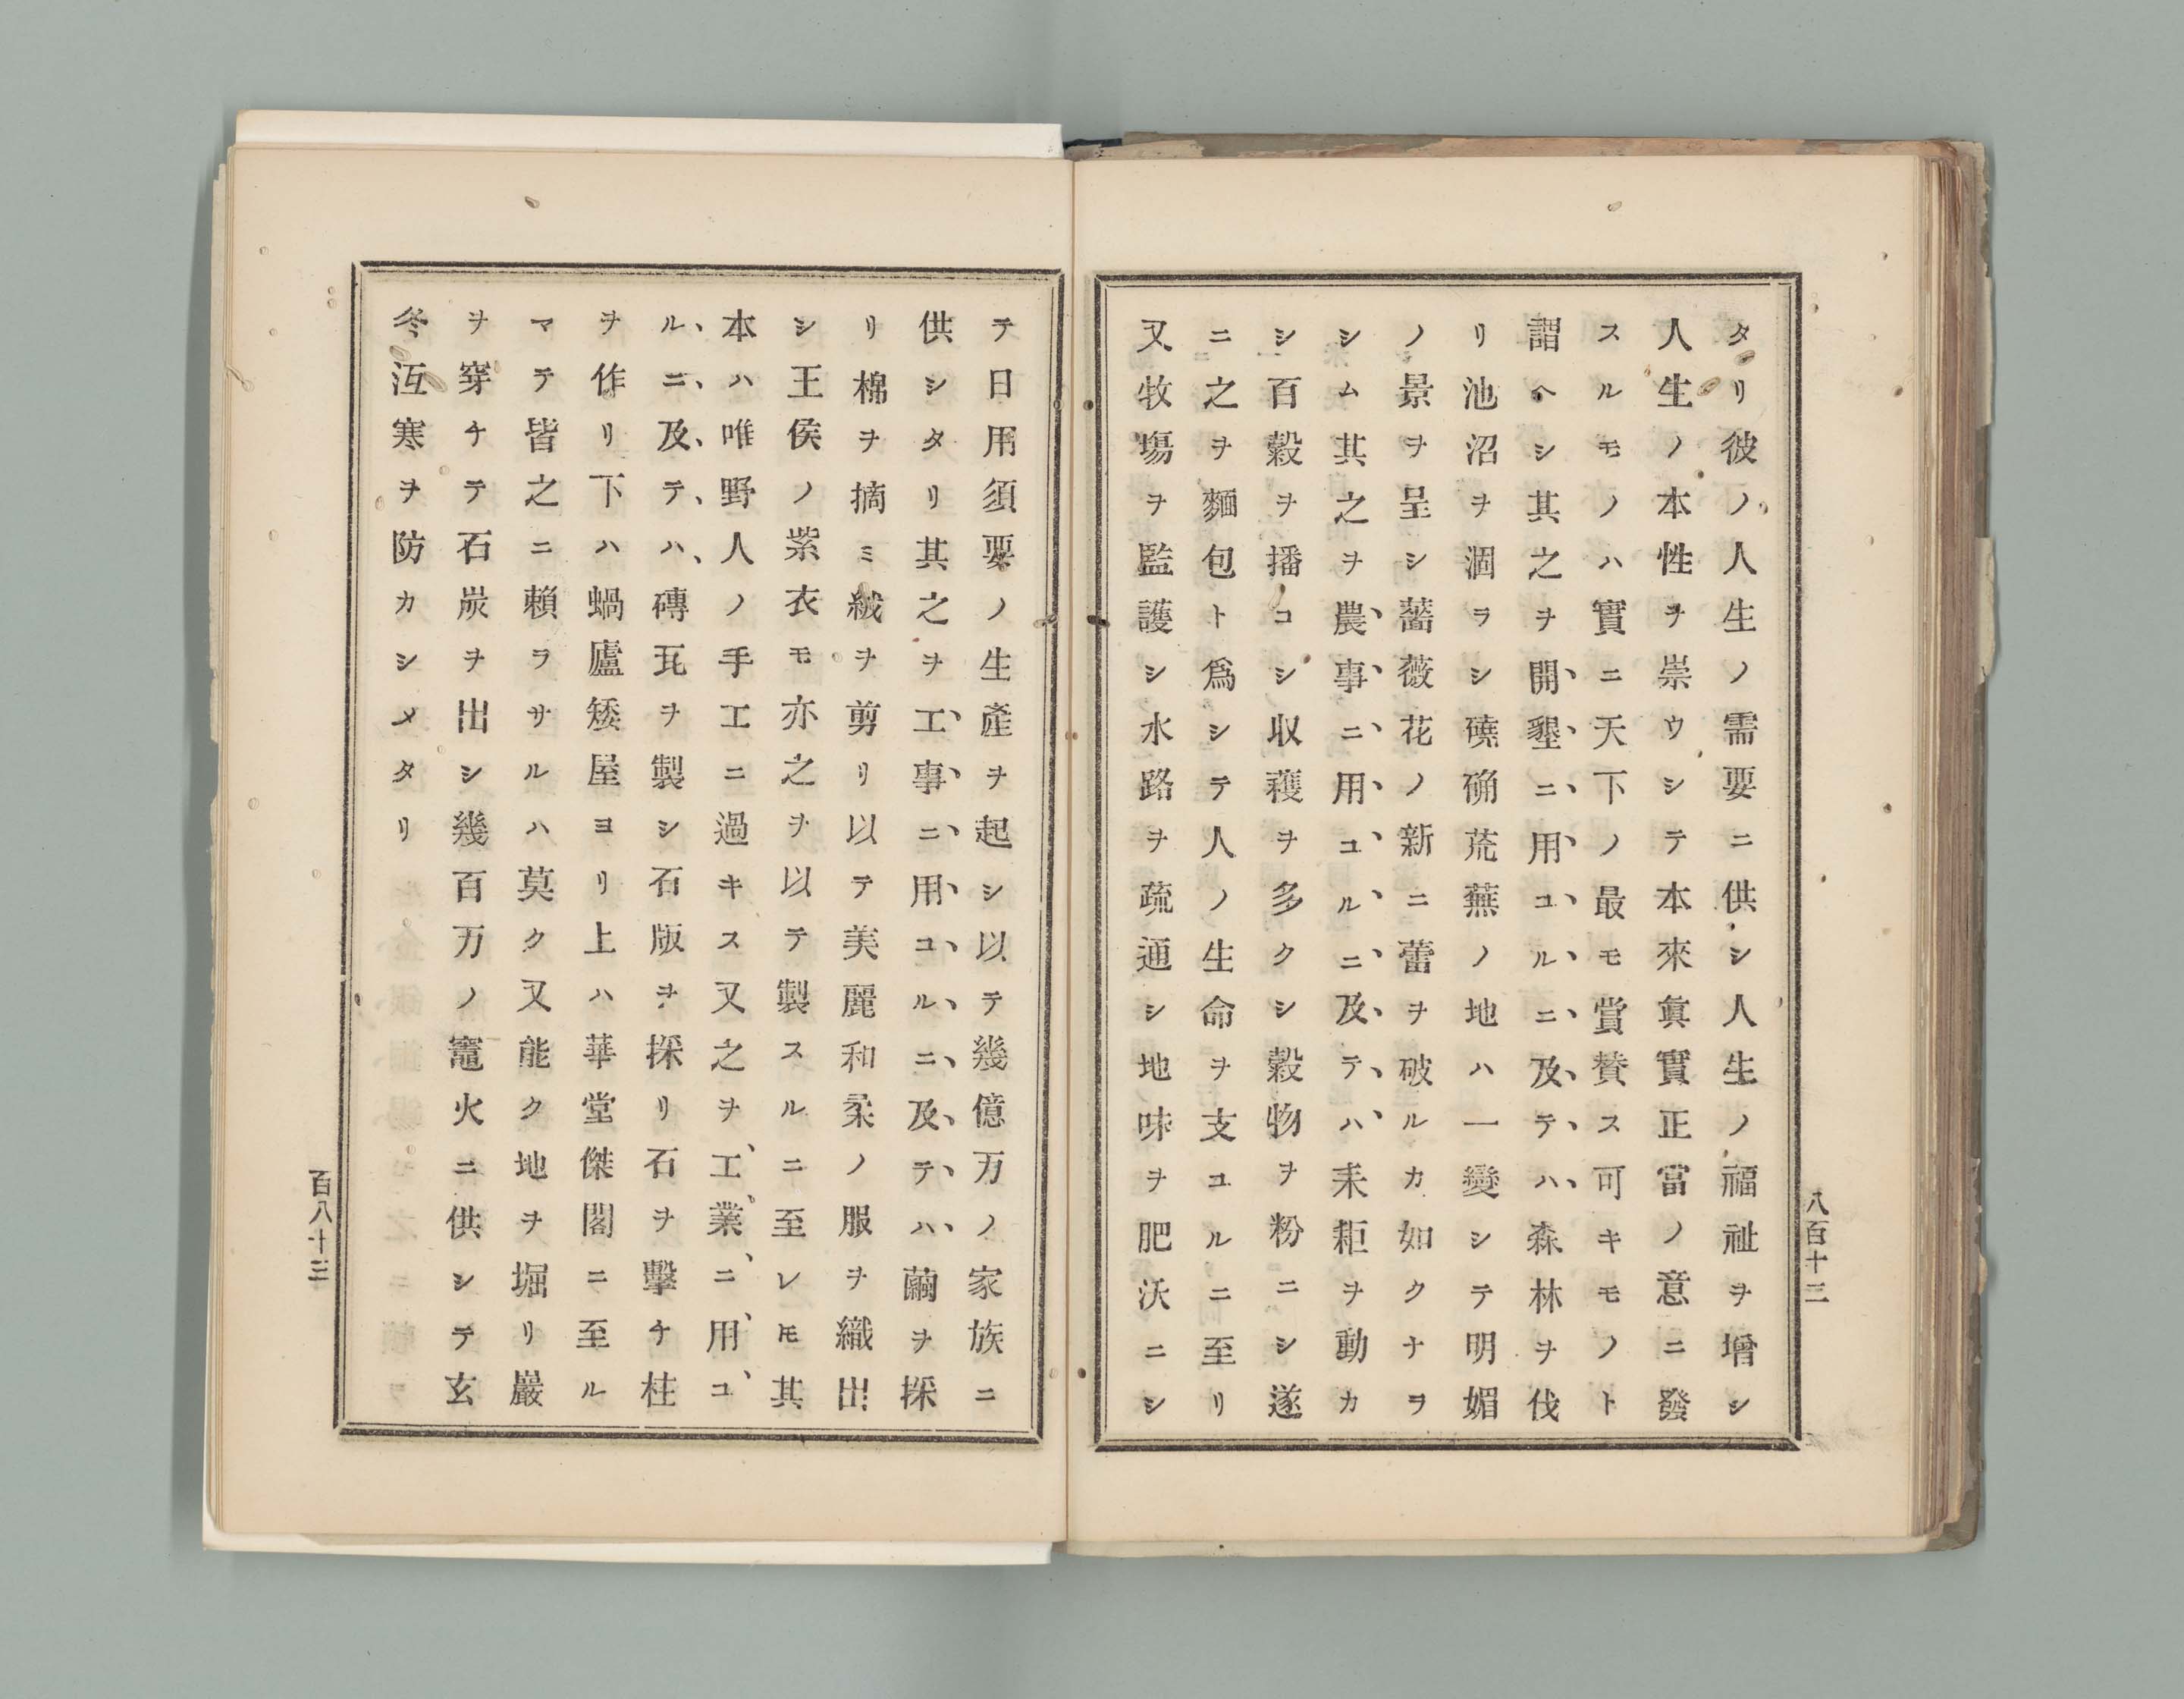 タリ彼ノ人生ノ需要ニ供シ人生ノ福祉ヲ增シ
人生ノ本性ヲ崇ウシテ本來眞實正當ノ意ニ發
スルモノハ實ニ天下ノ最モ賞賛ス可キモノト
謂ヘシ其之ヲ開墾ニ用ユルニ及テハ森林ヲ伐
リ池沼ヲ涸ラシ磽确荒蕪ノ地ハ一變シテ明媚
ノ景ヲ呈シ薔薇花ノ新ニ蕾ヲ破ルカ如クナヲ
シム其之ヲ農事ニ用ユルニ及テハ耒耟ヲ動カ
シ百穀ヲ播コシ収穫ヲ多クシ穀物ヲ粉ニシ遂
ニ之ヲ麵包ト爲シテ人ノ生命ヲ支ユルニ至リ
又牧塲ヲ監護シ水路ヲ疏通シ地味ヲ肥沃ニシ
八百十三
テ日用須要ノ生產ヲ起シ以テ幾億万ノ家族ニ
供シタリ其之ヲ工事ニ用ユルニ及テハ繭ヲ採
リ棉ヲ摘ミ絨ヲ剪リ以テ美麗和柔ノ服ヲ織出
シ王侯ノ紫衣モ亦之ヲ以テ製スルニ至レ𪜈其
本ハ唯野人ノ手工ニ過キス又之ヲ工業ニ用ユ
ルニ及テハ磚瓦ヲ製シ石版ヲ採リ石ヲ擊チ柱
ヲ作リ下ハ蝸廬矮屋ヨリ上ハ華堂傑閣ニ至ル
マテ皆之ニ賴ラサルハ莫ク又能ク地ヲ堀リ巖
ヲ穿チテ石炭ヲ出シ幾百万ノ竈火ニ供シテ玄
冬沍寒ヲ防カシメタリ
百八十三